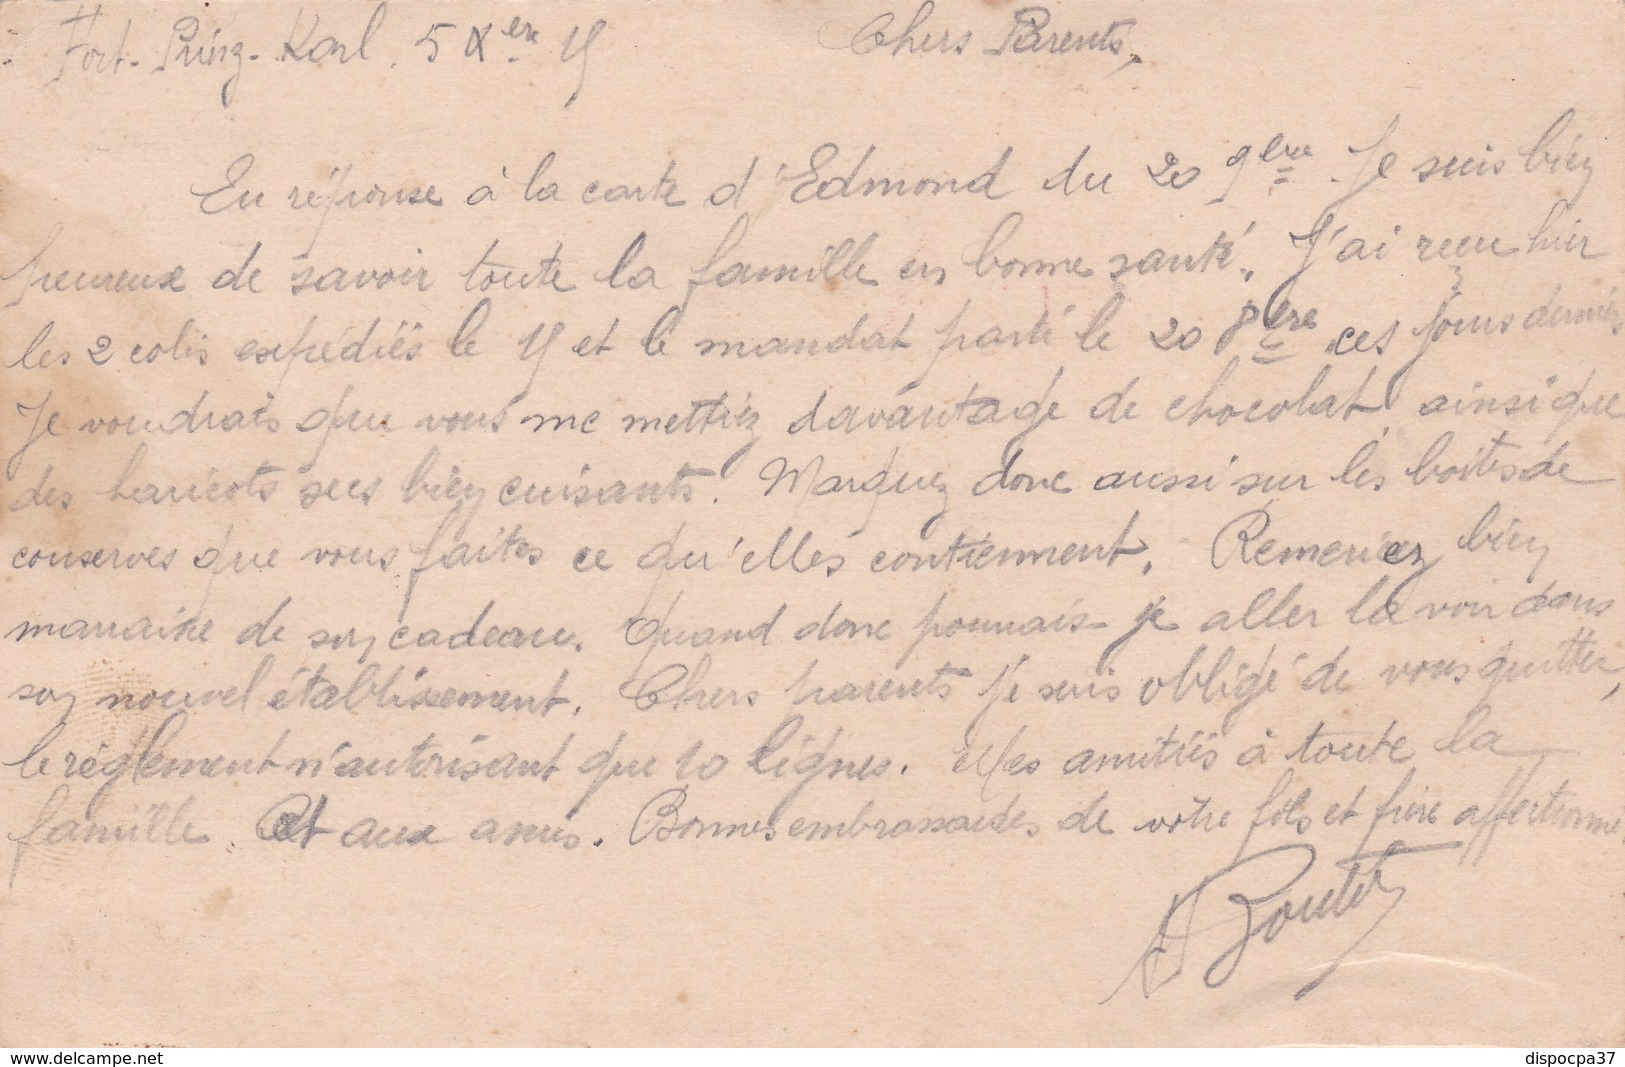 Fort. Prinz. Karl. 5 Xere 15 Chers Parents,
En réponse à la carte d'Edmond du 20 9ere. Je suis bien
heureux de savoir toute la famille en bonne santé. J'ai reçu hier
les 2 colis expédiés le 15 et le mandat parti le 20 8ere ces jours derniers
Je voudrais que vous me mettiez davantage de chocolat ainsi que
des haricots secs bien cuisants. Marquez donc aussi sur les boites de
conserves que vous faites ce qu'elles contiennent. Remerciez bien
marraine de son cadeau. Quand donc pourrais-je aller la voir dans
son nouvel établissement. Chers parents je suis obligé de vous quitter,
le règlement n'autorisant que 10 lignes. Mes amitiés à toute la
famille. Et aux amis. Bonnes embrassades de votre fils et frère affectionné
delcampe.net
dispocpa37